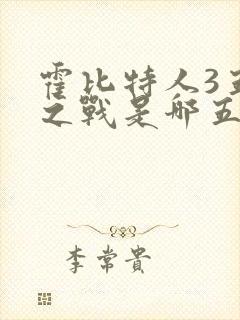 霍比特人3五
之戰是哪五
李常貴